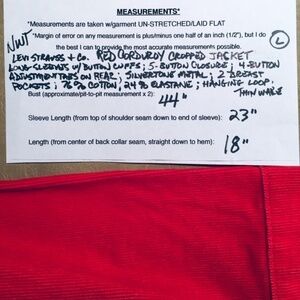 MEASUREMENTS*
*Measurements are taken w/garment UN-STRETCHED/LAID FLAT
NWT
*Margin of error on any measurement is plus/minus one half of an inch (1/2"), but I do
the best I can to provide the most accurate measurements possible.
L
LEVI STRAUSS & CO. RED CORDUROY CROPPED JACKET
LONG-SLEEVES W/BUTTON CUFFS; 5-BUTTON CLOSURE; 4-BUTTON
ADJUSTMENT TABS ON REAR; SILVERTONE METAL; 2 BREAST
POCKETS; 76% COTTON, 24% ELASTANE; HANGING LOOP.
THIN WALE
Bust (approximate/pit-to-pit measurement x 2):
44"
Sleeve Length (from top of shoulder seam down to end): 23"
Length (from center of back collar seam, straight down to hem): 18"